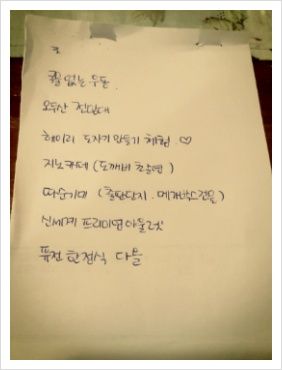 줄 없는 우동
오두산 전망대
헤이리 도자기 만들기 체험 ♡
지노카페 (도깨비 촬영)
따순기미 (출판단지. 메가박스건물)
신세계 프리미엄아울렛
퓨전 한정식 다믈